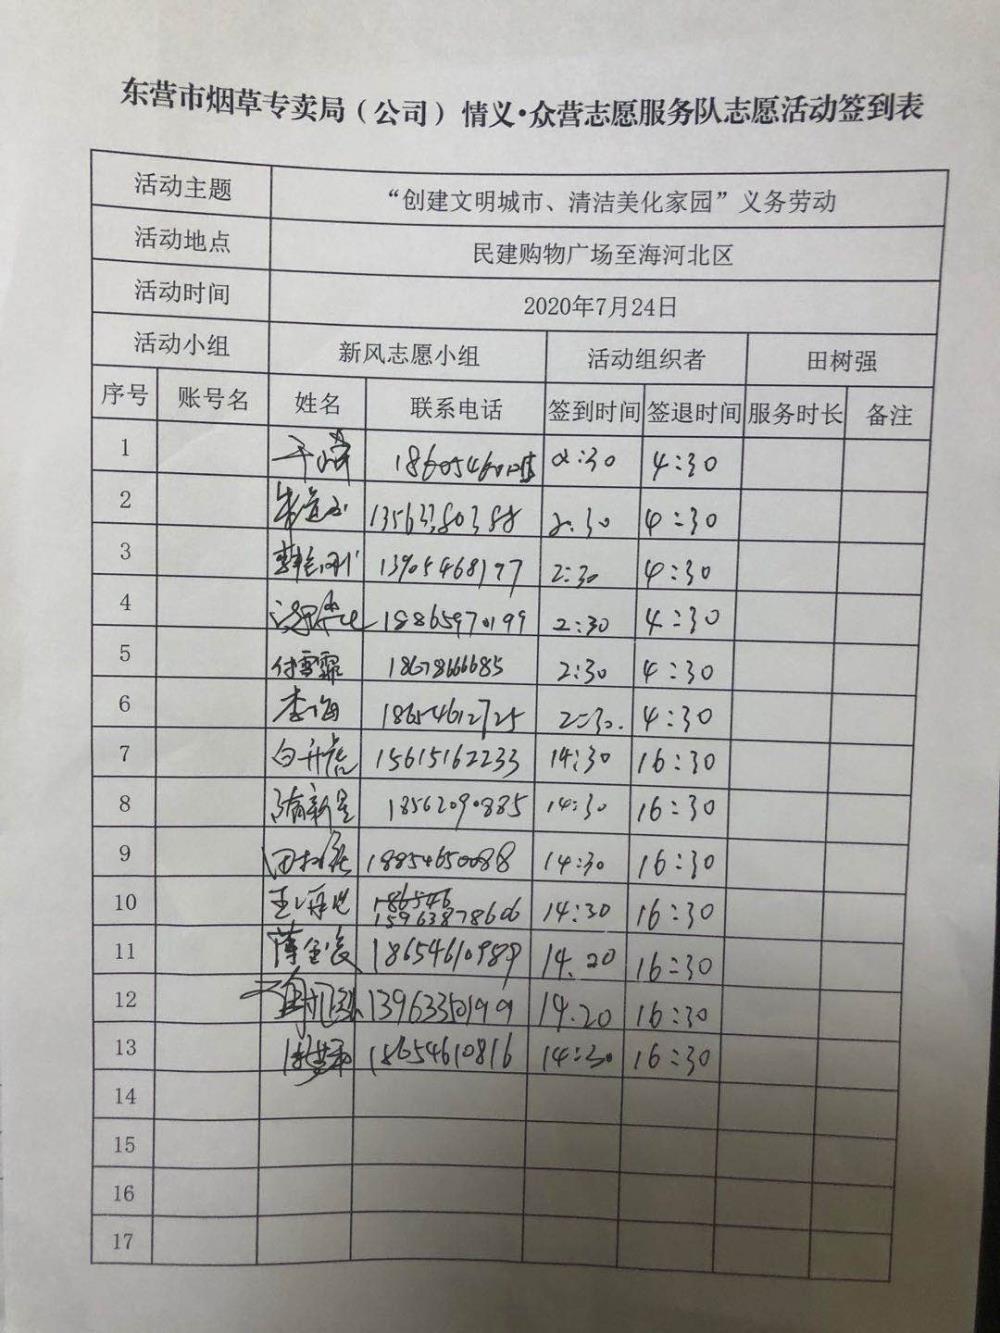 东营市烟草专卖局（公司）情义·众营志愿服务队志愿活动签到表
活动主题 “创建文明城市、清洁美化家园”义务劳动
活动地点 民建购物广场至海河北区
活动时间 2020年7月24日
活动小组 新风志愿小组 活动组织者 田树强
序号 账号名 姓名 联系电话 签到时间 签退时间 服务时长 备注
1 2:30 4:30
2 2:30 4:30
3 13905468197 2:30 4:30
4 18865970199 2:30 4:30
5 付雪霏 18678666685 2:30 4:30
6 李海 18654612725 2:30 4:30
7 15615162233 14:30 16:30
8 18562090885 14:30 16:30
9 田树强 18854650088 14:30 16:30
10 186546
15963878606 14:30 16:30
11 薄金良 18654610989 14.20 16:30
12 13963350199 14.20 16:30
13 18654610816 14:30 16:30
14
15
16
17